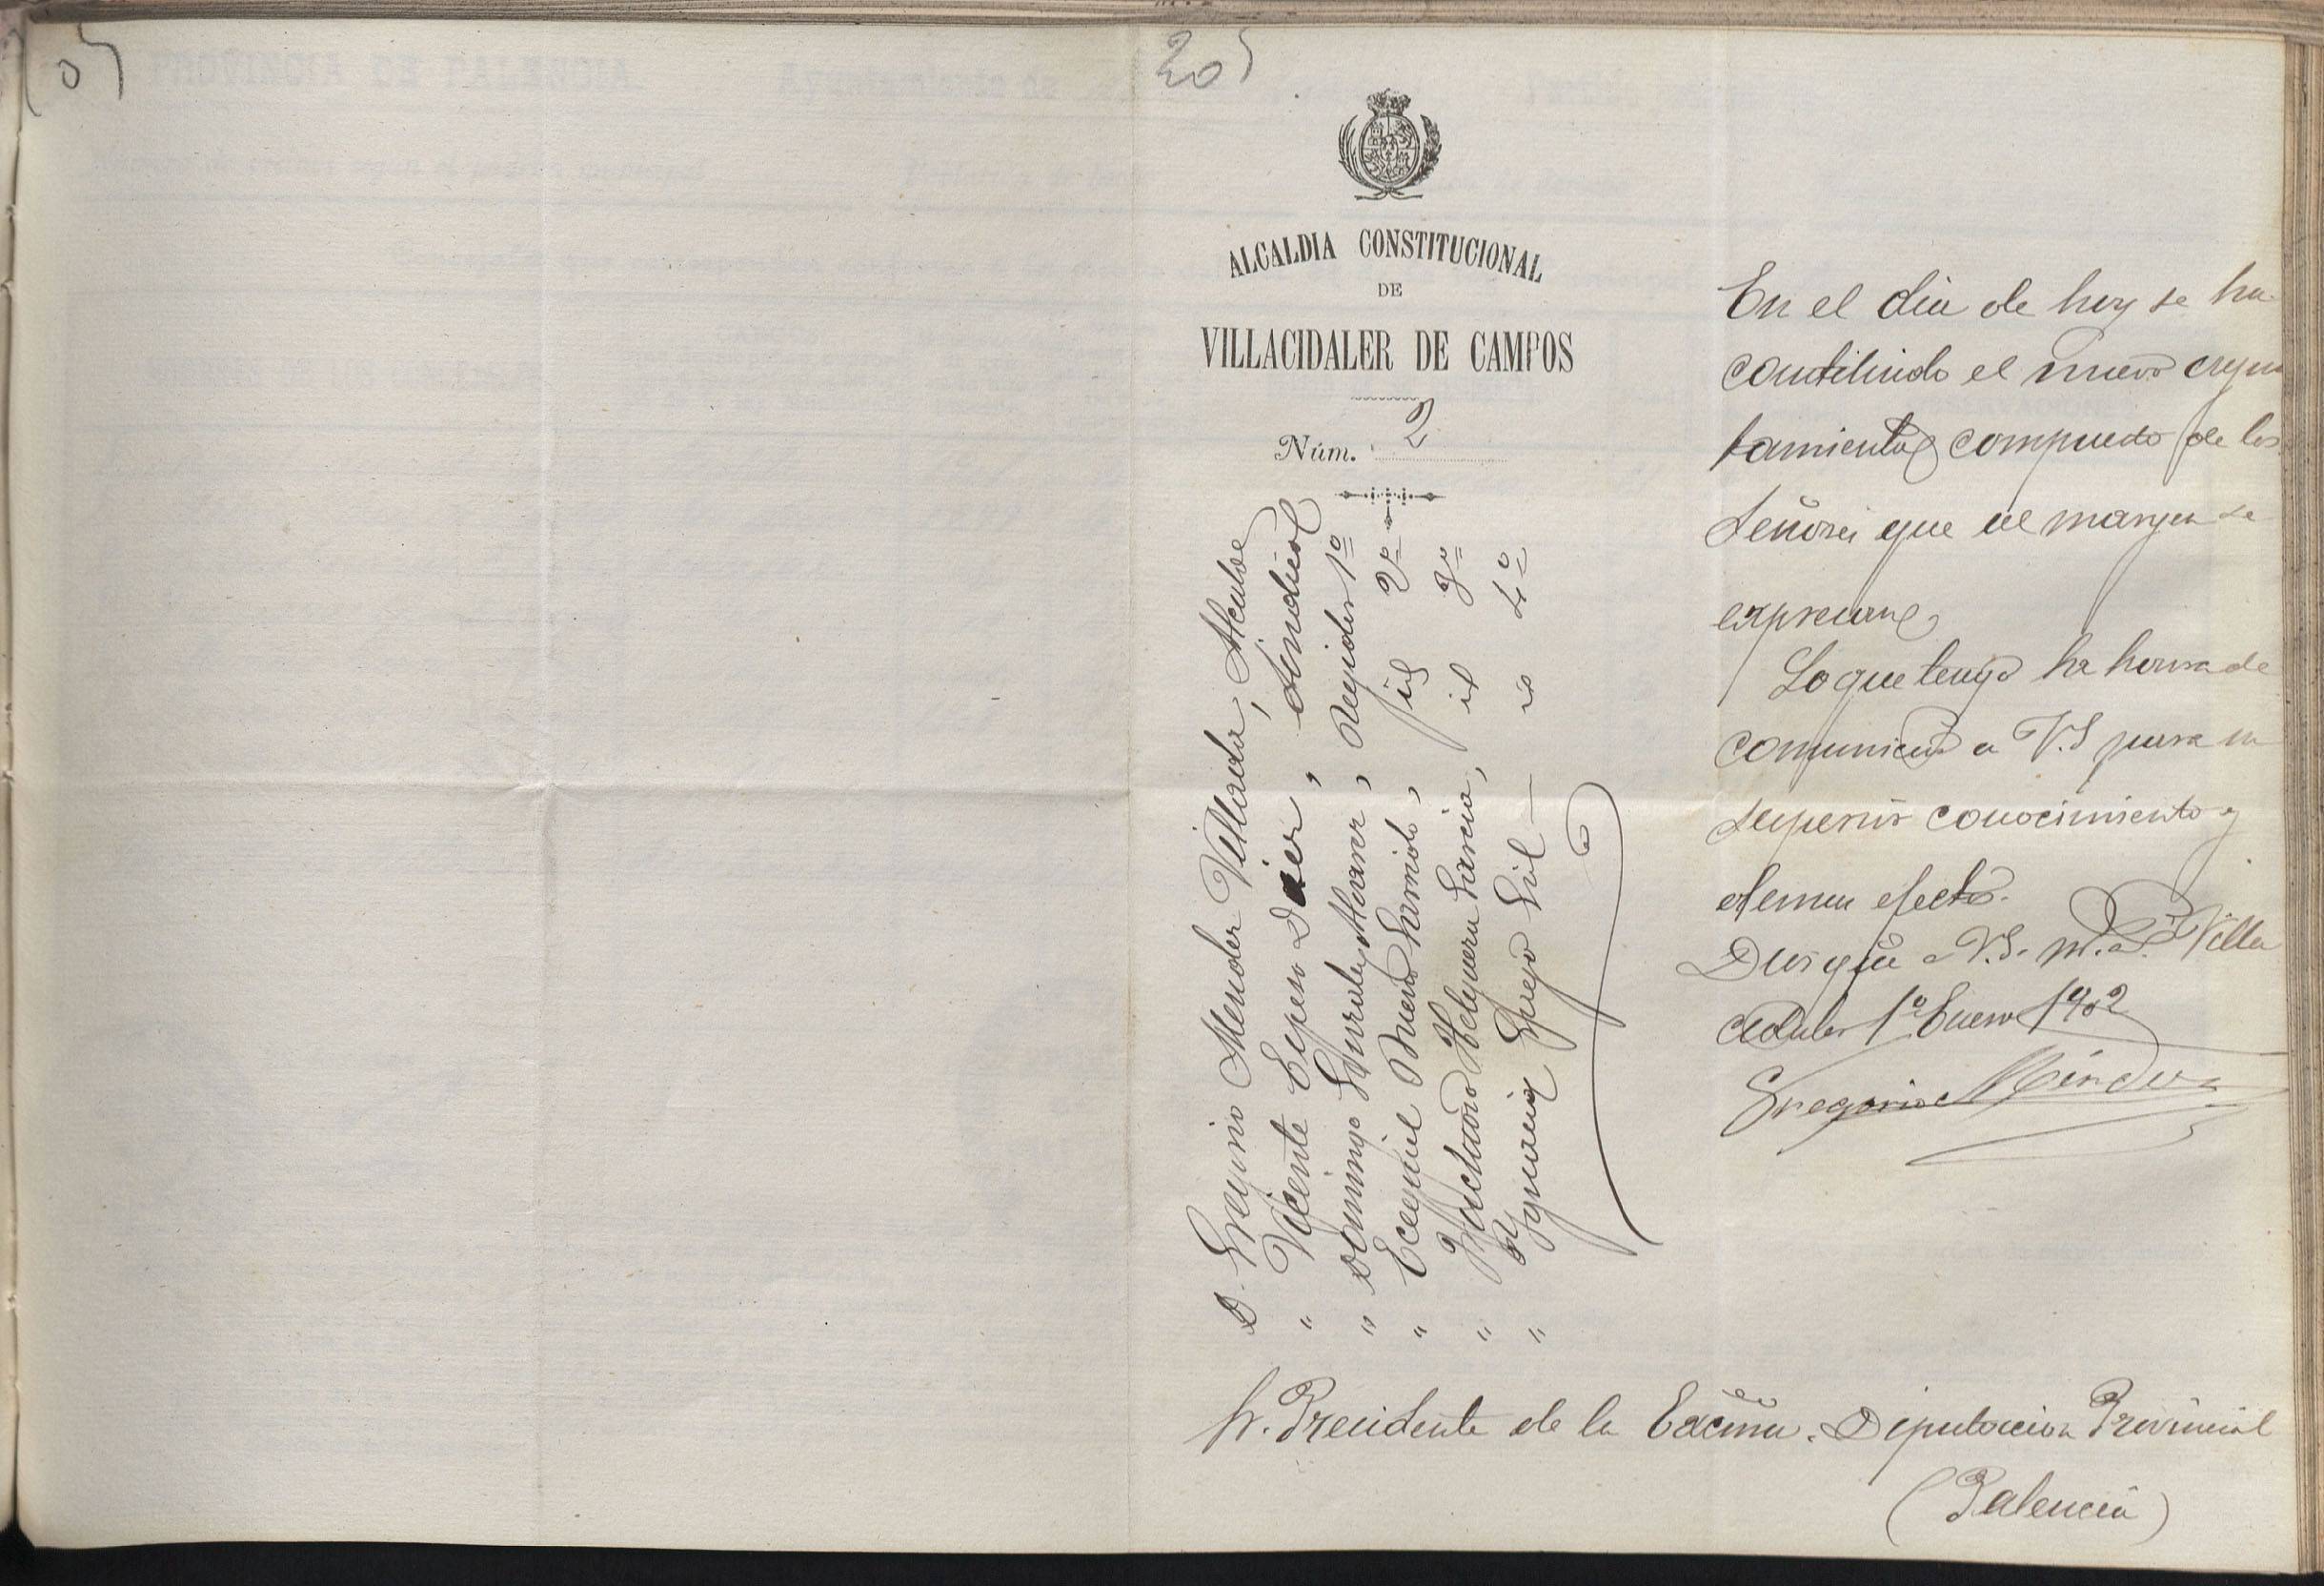 205
ALCALDIA CONSTITUCIONAL
DE
VILLACIDALER DE CAMPOS
Núm. 2
D. Gregorio Mendez Villada, Alcalde
" Vicente Espeso Dier, Sindico
" Domingo Alvarez, Regidor 1º
" Ecequiel Bueno Garrido, id 2º
" Helguera Garcia, id 3º
" Ygnacio Espejo Gil — id 4º
En el dia de hoy se ha
constituido el nuevo ayun
tamiento compuesto de los
Señores que al margen se
expresan,
Lo que tengo ha honra de
comunicar a V.S para su
superior conocimiento y
demas efectos.
Dios gue a V.S. m. a. Villa
cidaler 1º Enero 1902
Gregorio Méndez
Sr. Presidente de la Excma. Diputacion Provincial
(Palencia)